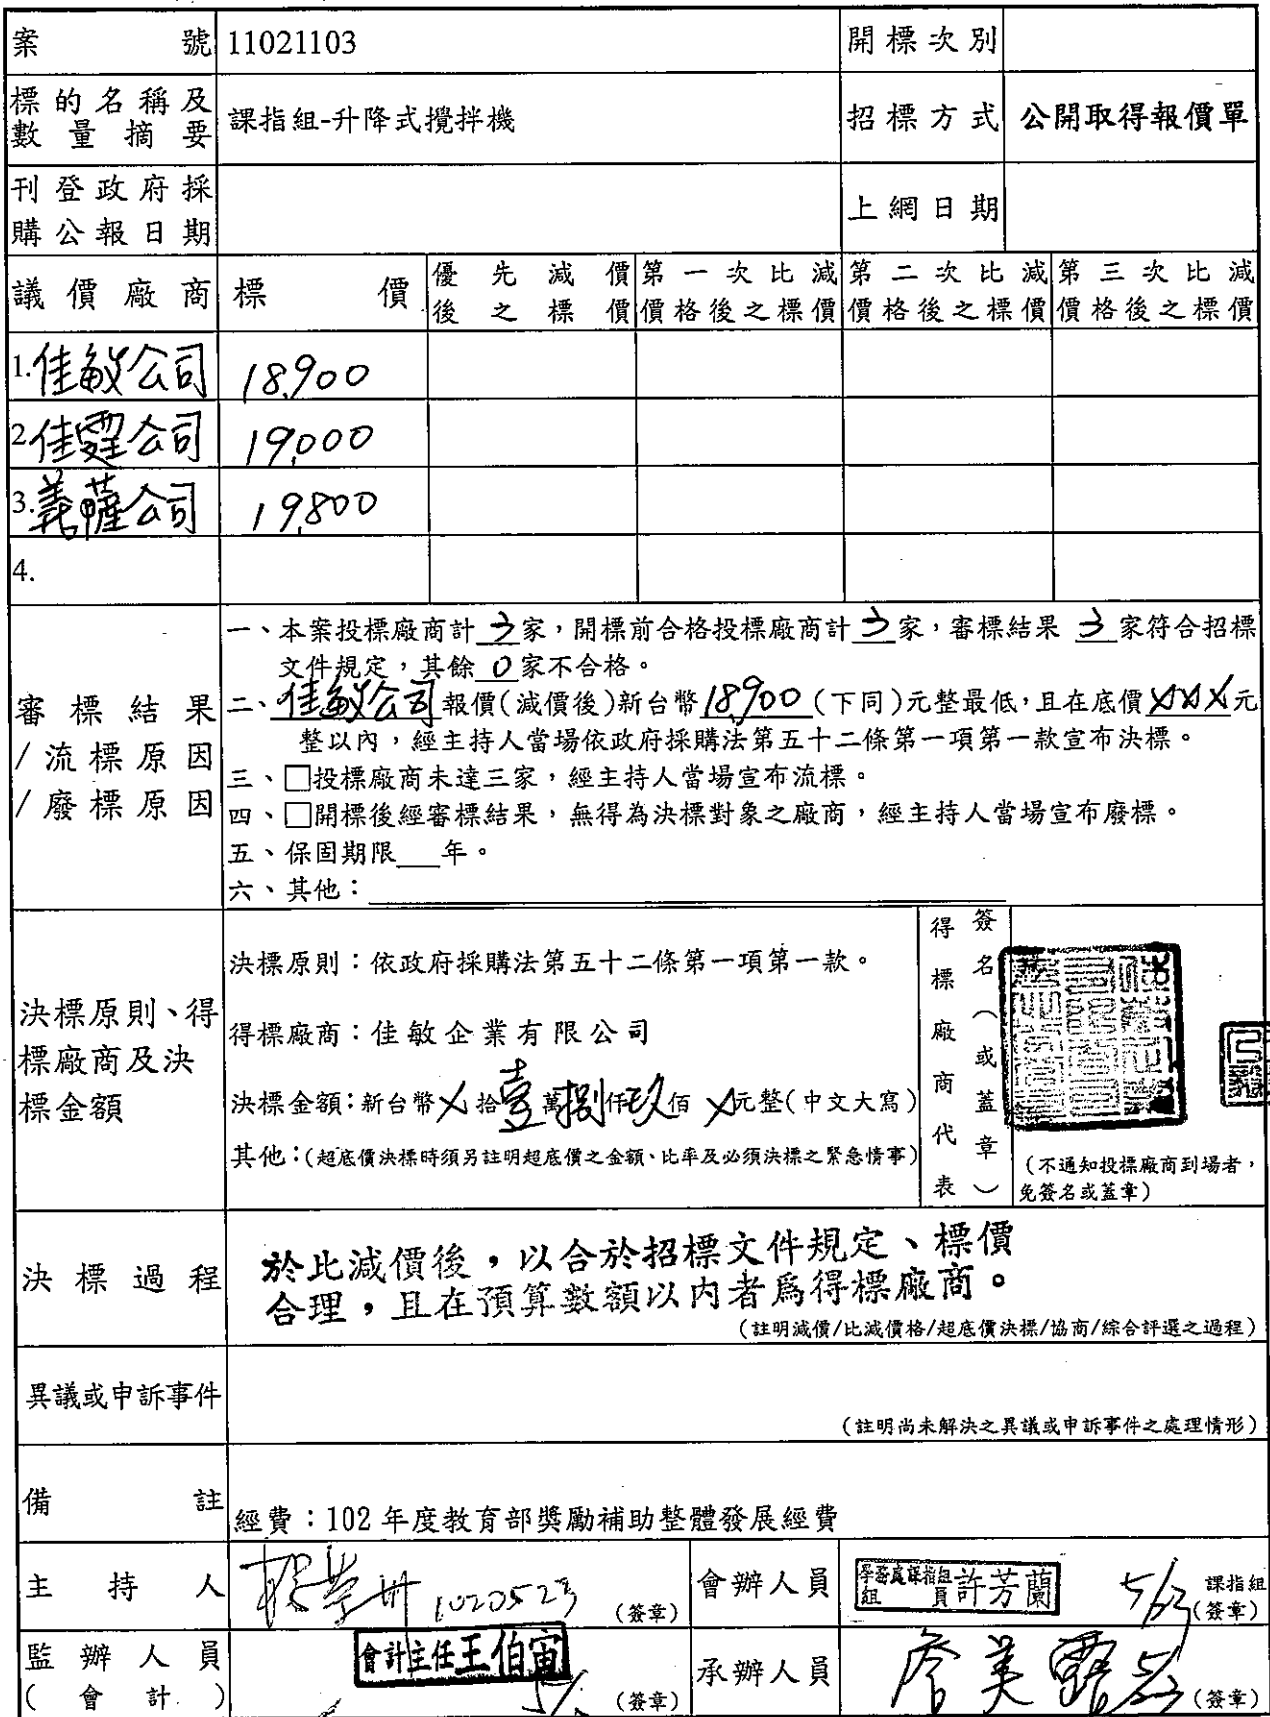 案號 11021103 開標次別
標的名稱及數量摘要 課指組-升降式攪拌機 招標方式 公開取得報價單
刊登政府採購公報日期 上網日期
議價廠商 標價 優先減價後之標價 第一次比減價格後之標價 第二次比減價格後之標價 第三次比減價格後之標價
1.佳敏公司 18,900
2.佳霆公司 19,000
3.義薩公司 19,800
4.
審標結果/流標原因/廢標原因
一、本案投標廠商計 3 家,開標前合格投標廠商計 3 家,審標結果 3 家符合招標
文件規定,其餘 0 家不合格。
二、佳敏公司報價(減價後)新台幣18,900(下同)元整最低,且在底價XXX元
整以內,經主持人當場依政府採購法第五十二條第一項第一款宣布決標。
三、□投標廠商未達三家,經主持人當場宣布流標。
四、□開標後經審標結果,無得為決標對象之廠商,經主持人當場宣布廢標。
五、保固期限___年。
六、其他:
決標原則、得標廠商及決標金額
決標原則:依政府採購法第五十二條第一項第一款。
得標廠商:佳敏企業有限公司
決標金額:新台幣X拾壹萬捌仟玖佰X元整(中文大寫)
其他:(超底價決標時須另註明超底價之金額、比率及必須決標之緊急情事)
得標廠商代表 簽名(或蓋章)
(不通知投標廠商到場者,
免簽名或蓋章)
決標過程
於比減價後,以合於招標文件規定、標價
合理,且在預算數額以內者為得標廠商。
(註明減價/比減價格/超底價決標/協商/綜合評選之過程)
異議或申訴事件
(註明尚未解決之異議或申訴事件之處理情形)
備註 經費:102年度教育部獎勵補助整體發展經費
主持人 1020523 (簽章) 會辦人員 學務處課指組組員許芳蘭 5/23 課指組(簽章)
監辦人員(會計) 會計主任王伯宙 (簽章) 承辦人員 詹美露 5/23 (簽章)